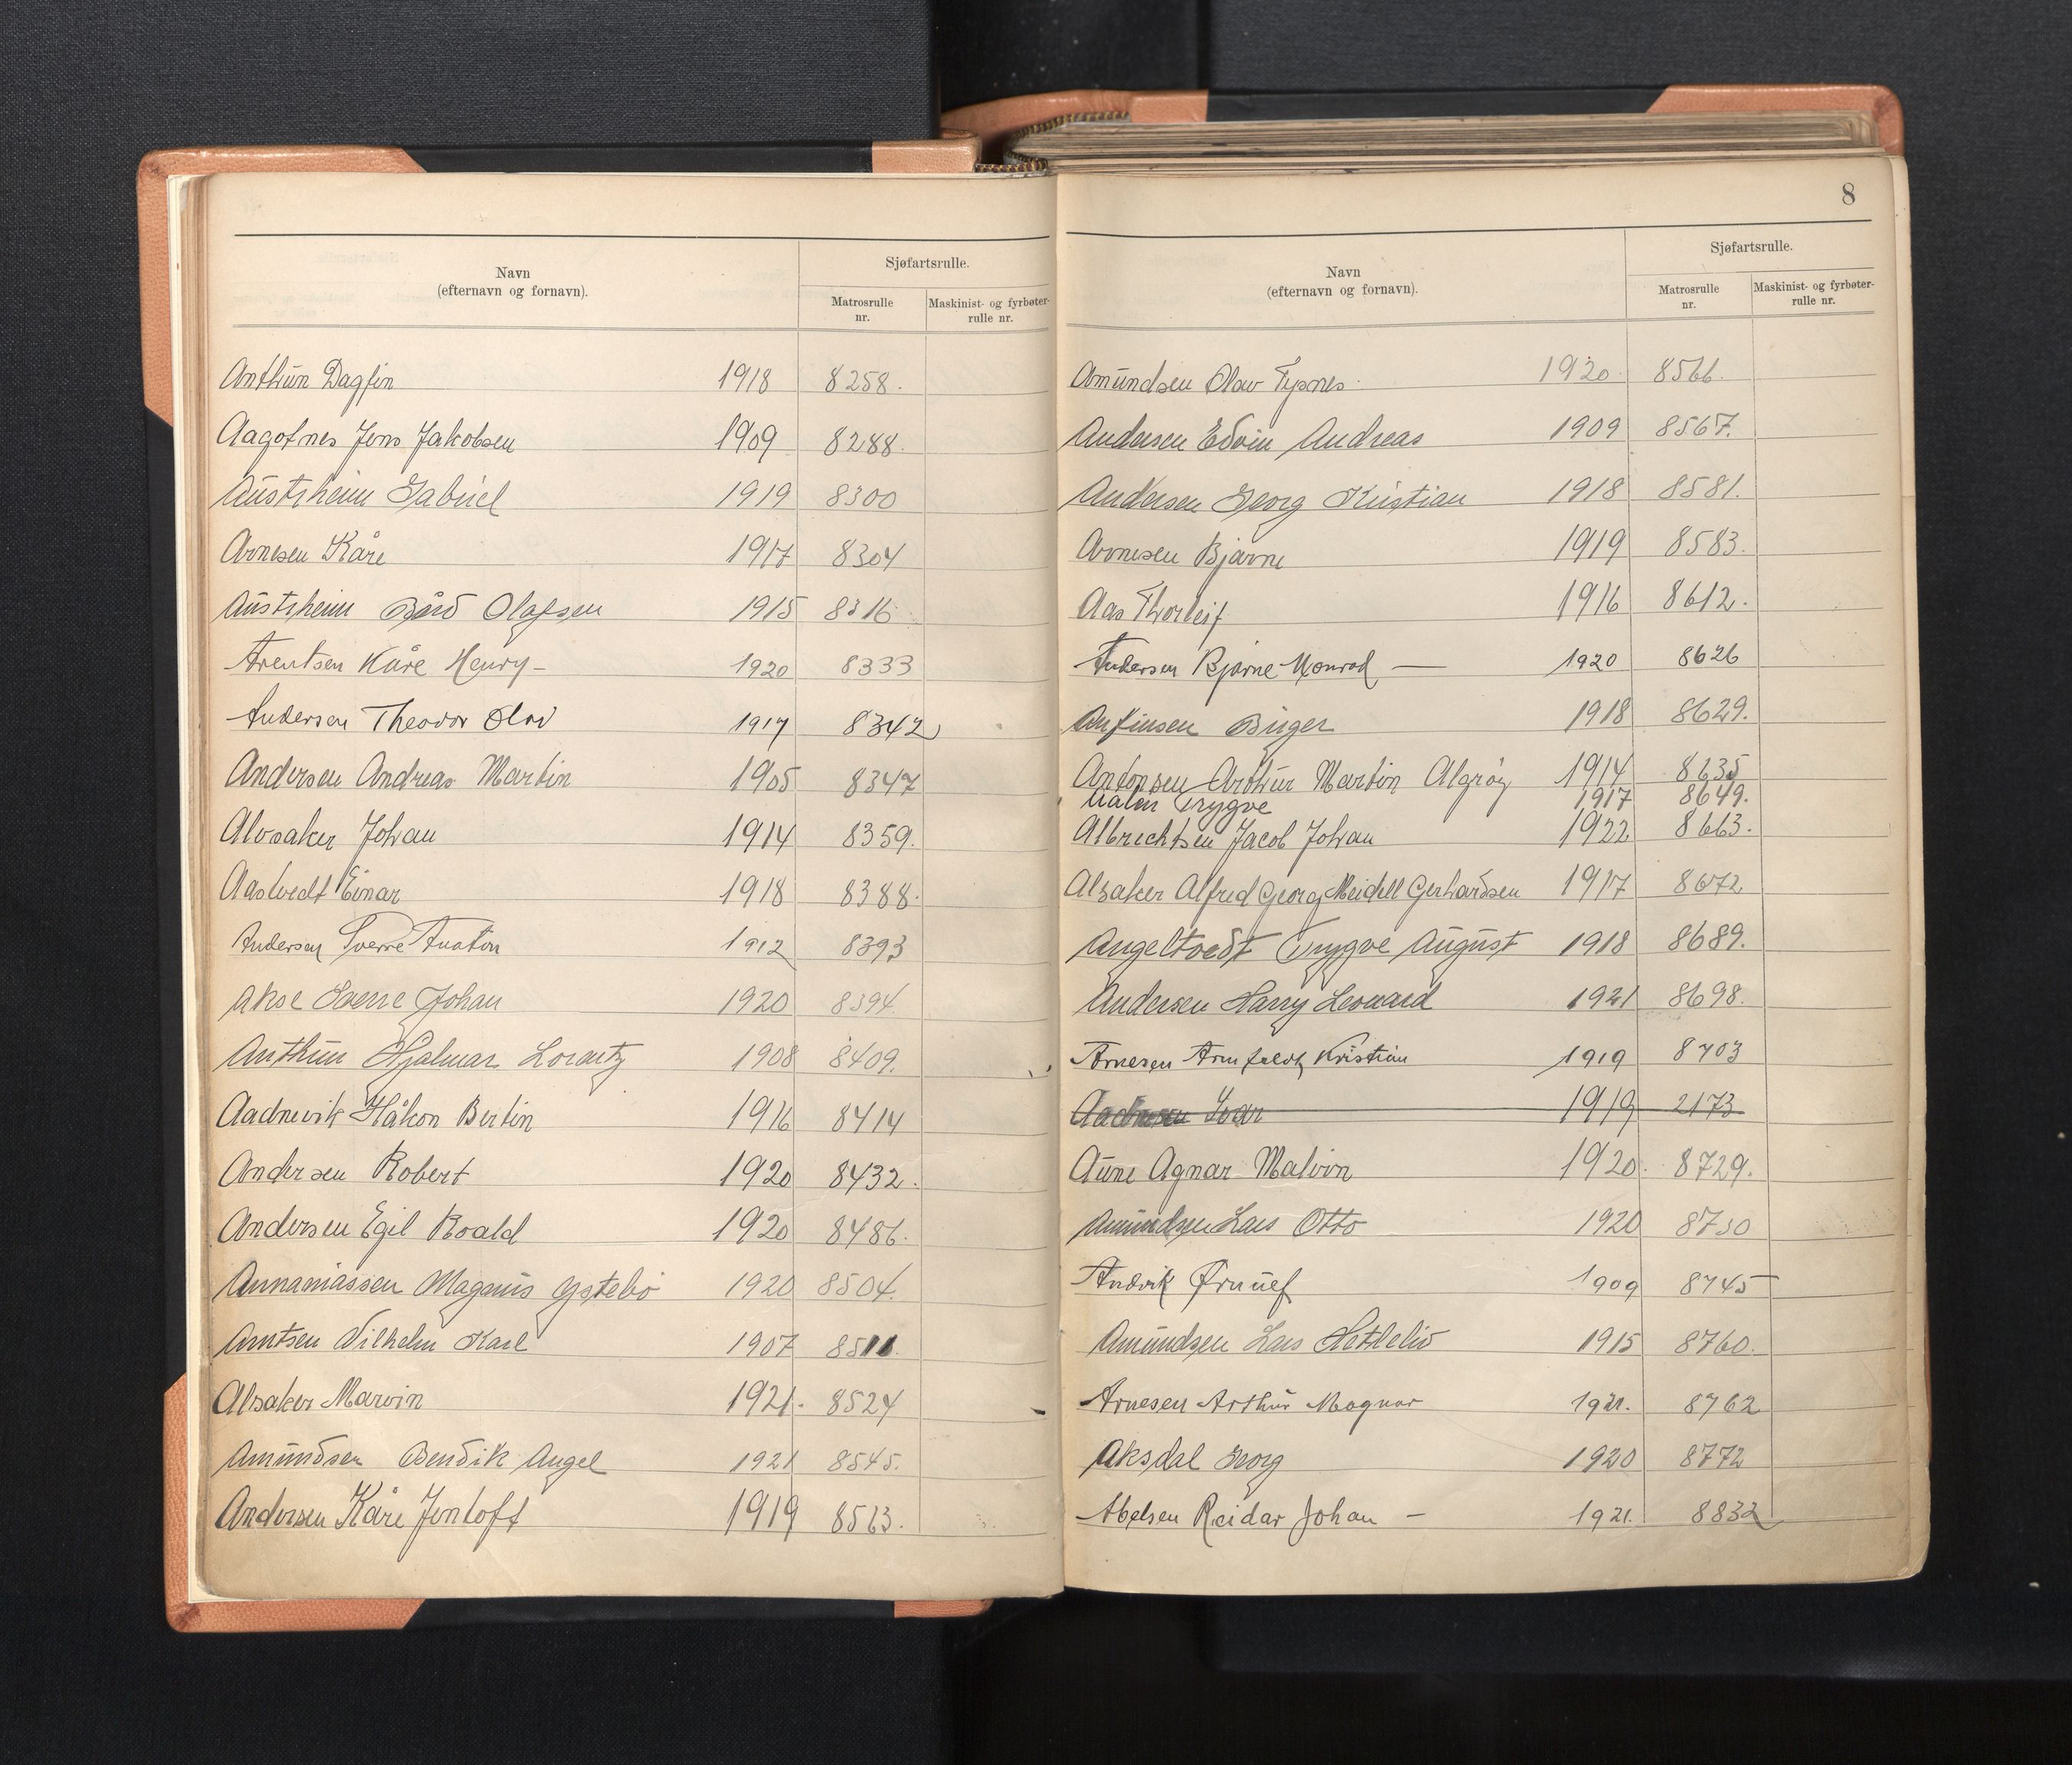 Navn
(efternavn og fornavn).
Sjøfartsrulle.
Matrosrulle
nr.
Maskinist- og fyrbøter-
rulle nr.
Anthun Dagfin 1918 8258.
Aagotnes Jens Jakobsen 1909 8288.
Austrheim Gabriel 1919 8300
Arnesen Kåre 1917 8304
Austrheim Bård Olafsen 1915 8316
Arentsen Kåre Henry- 1920 8333
Andersen Theodor Olav 1917 8342
Andersen Andreas Martin 1905 8347
Alvsaker Johan 1914 8359.
Aastvedt Einar 1918 8388.
Andersen Sverre Anaton 1912 8393
Akse Sverre Johan 1920 8394.
Anthun Hjalmar Lorantz 1908 8409.
Aadnevik Håkon Bertin 1916 8414
Andersen Robert 1920 8432.
Andersen Egil Roald 1920 8486.
Annaniassen Magnus Ystebø 1920 8504.
Arntsen Vilhelm Karl 1907
Alsaker Marvin 1921. 8524
Amundsen Bendik Angel 1921 8545.
Andersen Kåre Jentoft 1919 8563.
8
Navn
(efternavn og fornavn).
Sjøfartsrulle.
Matrosrulle
nr.
Maskinist- og fyrbøter-
rulle nr.
Amundsen Olav Tysnes 1920. 8566.
Andersen Edvin Andreas 1909 8567.
Andersen Georg Kristian 1918 8581.
Arnesen Bjarne 1919 8583.
Aas Thorleif 1916 8612.
Andersen Bjarne Monrad — 1920 8626
Anfinsen Birger 1918 8629.
Antonsen Arthur Martin Algrøy 1914 8635
Trygve 1917 8649.
Albrechtsen Jacob Johan 1922 8663.
Alsaker Alfred Georg Meidell Gerhardsen 1917 8672
Angeltvedt Trygve August 1918 8689.
Andersen Harry Leonard 1921 8698.
Arnesen Armfeldt Kristian 1919 8703
Aadnesen Ivar 1919 2173
Aune Agnar Malvin 1920. 8729.
Amundsen Lars Otto 1920 8730
Andvik Ørnulf 1909 8745
Amundsen Lars Hetlelid 1915 8760.
Arnesen Arthur Magnar 1921. 8762
Aksdal Georg 1920 8772
Abelsen Reidar Johan — 1921. 8832